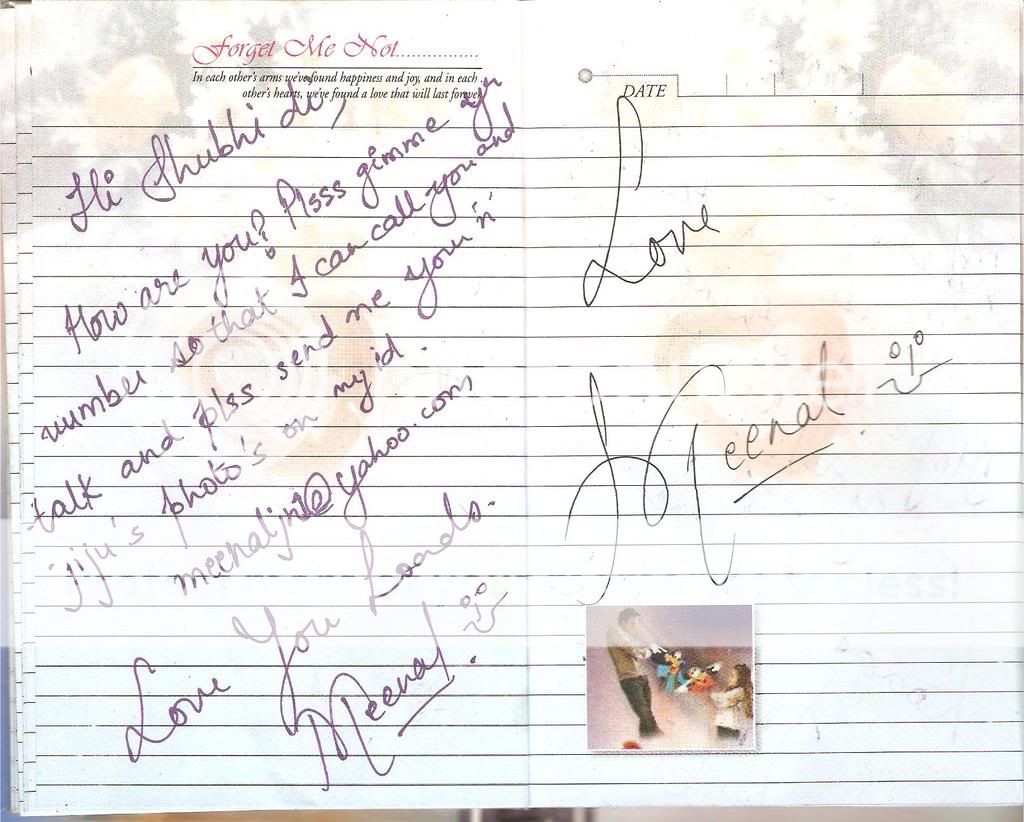 Forget Me Not...............
In each other's arms we've found happiness and joy, and in each
other's hearts, we've found a love that will last forever
Hi Shubhi di,
How are you? Plsss gimme yr
number so that I can call you and
talk and plss send me your 'n'
jiju's photo's on my id.
@yahoo.com
Love You Loads.
Meenal.
DATE
Love
Meenal.